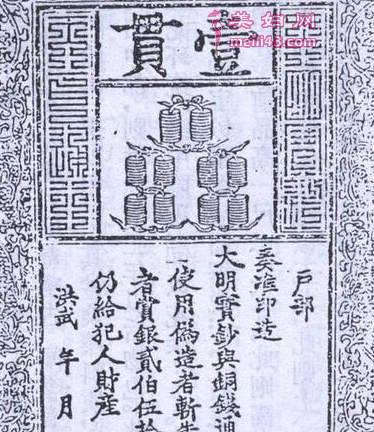 美妇网
meili43.com
壹貫
大明寶鈔
天下通行
戶部
奏准印造
大明寶鈔與銅錢通
使用僞造者斬告
者賞銀貳伯伍拾
仍給犯人財產
洪武 年 月